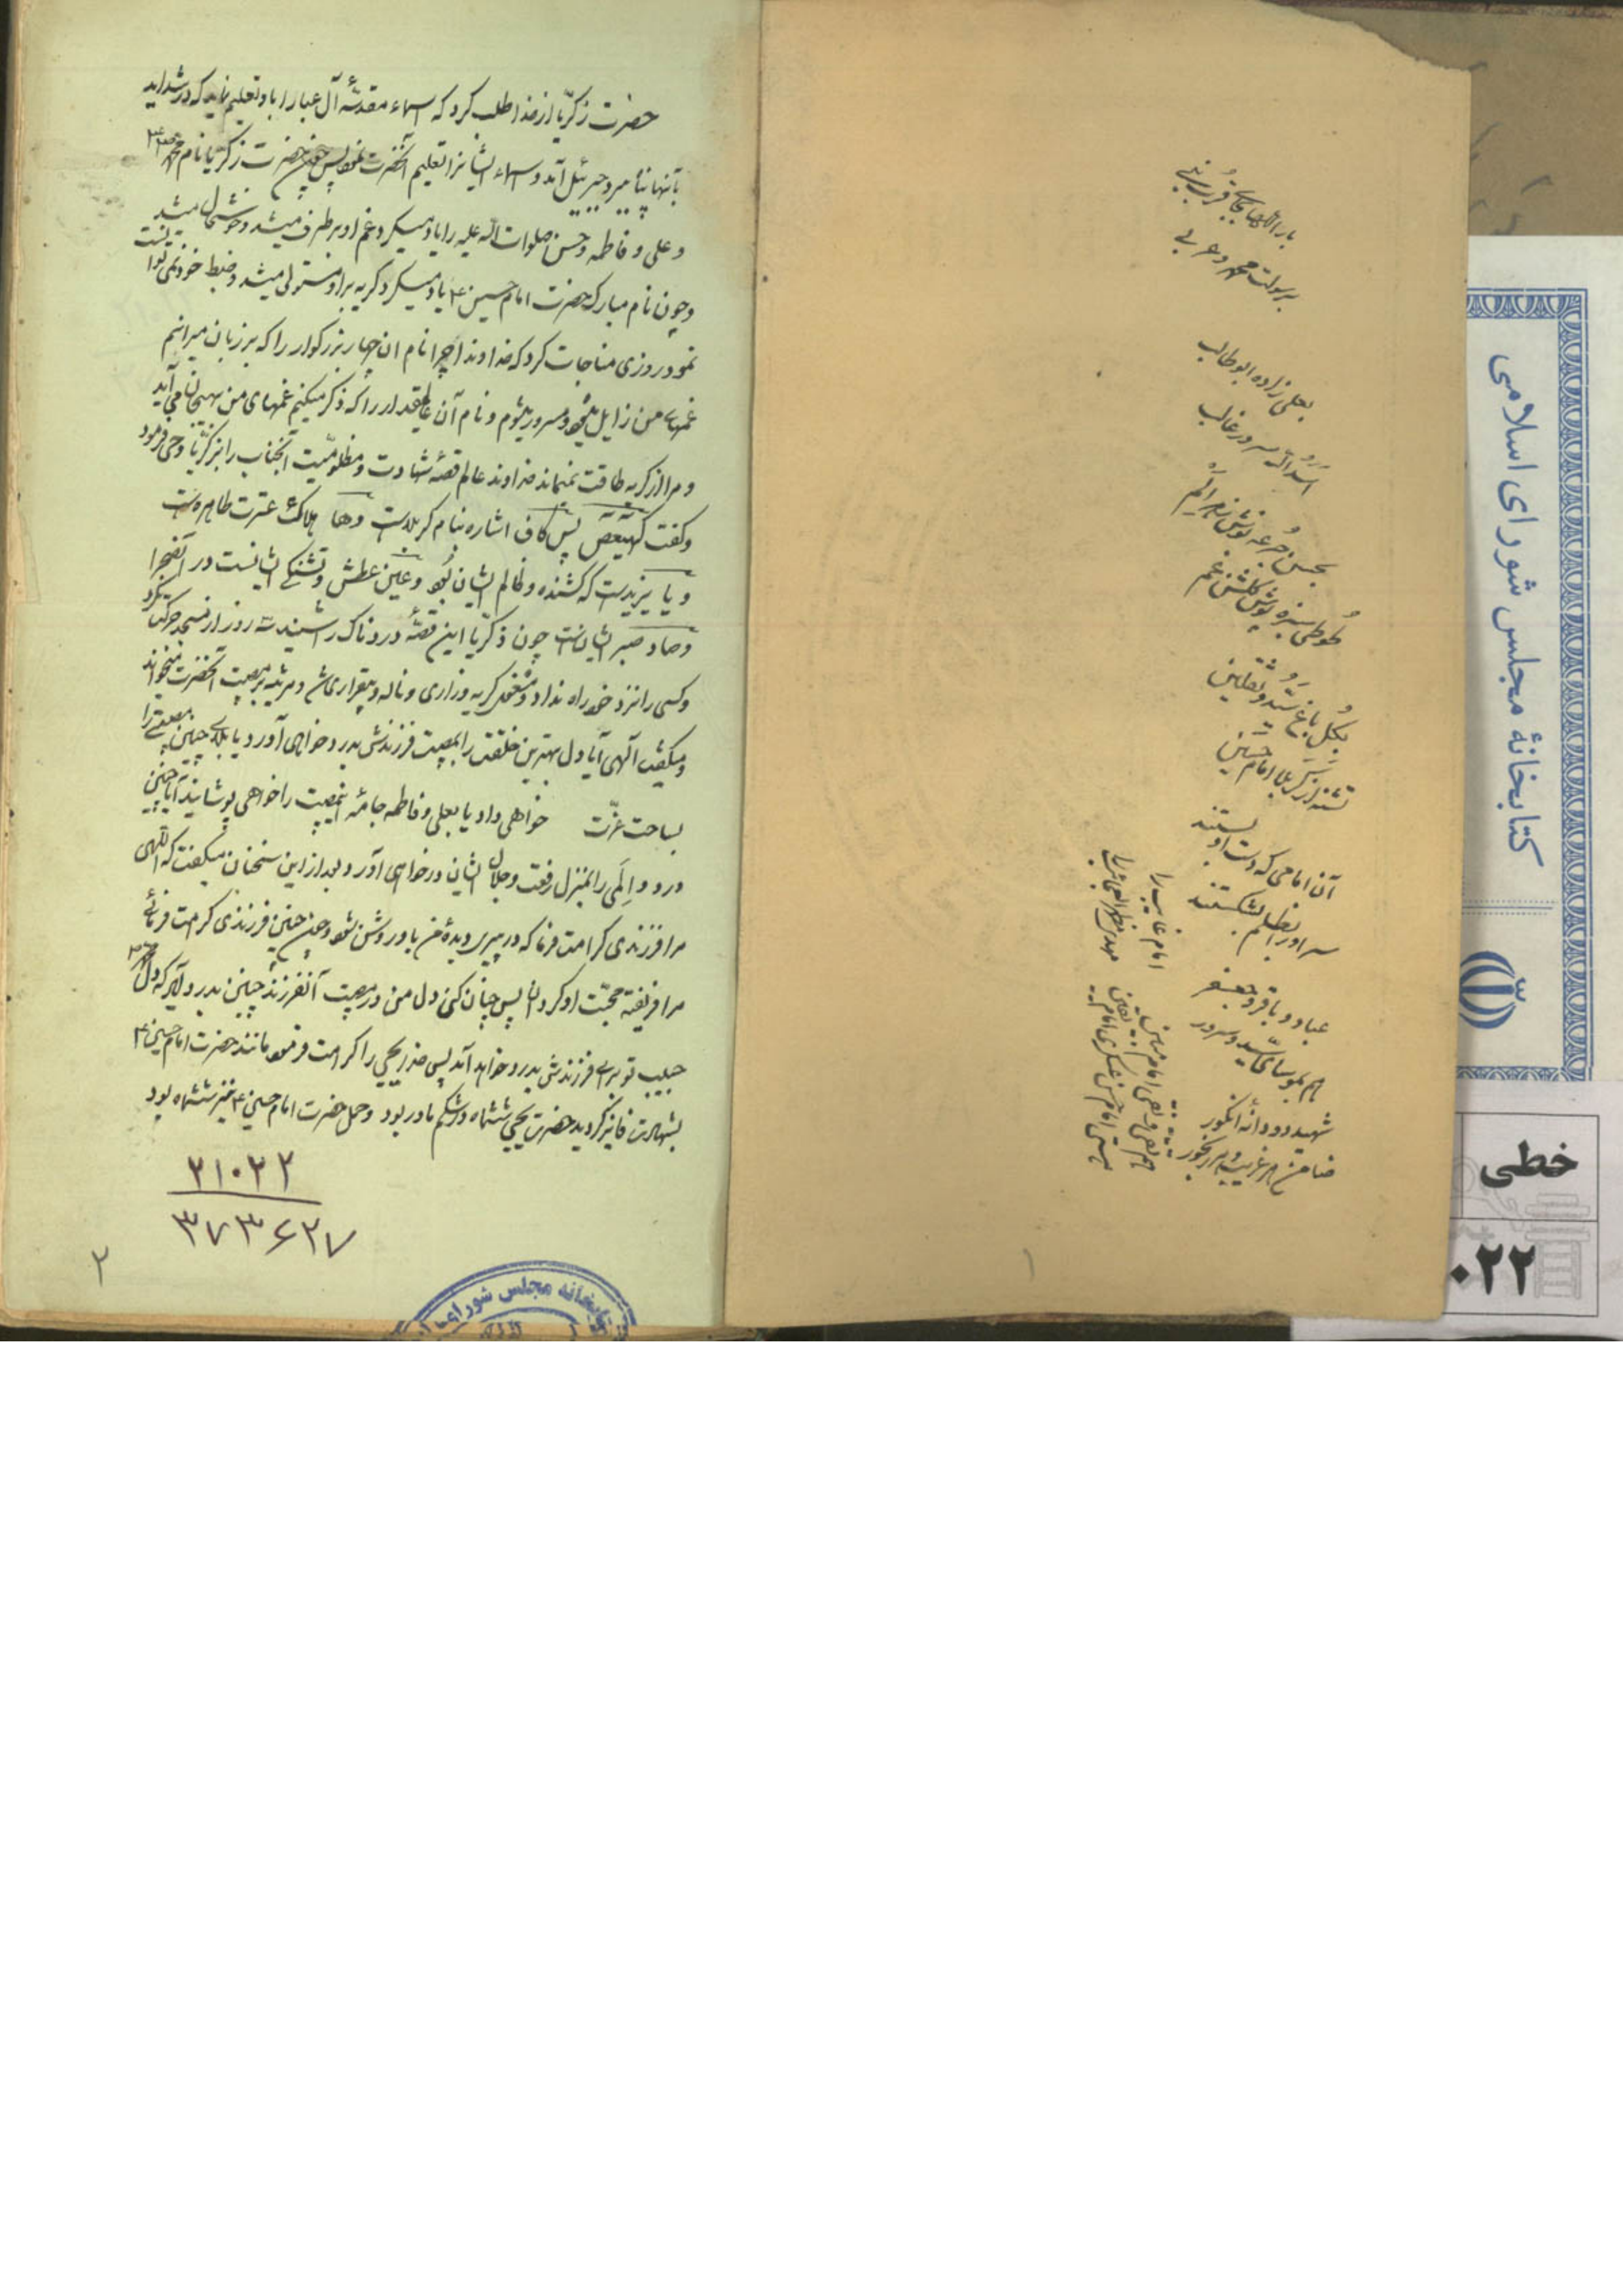 بار الٰها بجاه قرب نبی
برسولت محمد عربی
بعلی زاده ابوطالب
اسد الله سرور غالب
بحسن جرعه نوش زهر الم
طوطی سبزه پوش گلشن غم
بگل باغ سید ثقلین
تشنه لب کربلا امام حسین
آن امامی که دست او بستند
سر او را بظلم بشکستند
بعباد و باقر و جعفر
هم بموسای سید و سرور
شهید دو دانهٔ انگور
ضامن هر غریب و هر رنجور
هم تقی و نقی امام
بحق امام حسن عسکری امام
امام غایب را
مهدی مظهر العجائب را
۱
حضرت زکریا از خدا طلب کرد که اسماء مقدسهٔ آل عبا را باو تعلیم نماید که در شداید
بآنها پناه برد جبرئیل آمد و اسماء ایشانرا تعلیم آنحضرت نمود پس چون حضرت زکریا نام محمد
و علی و فاطمه و حسن صلوات الله علیه را یاد میکرد غم او برطرف میشد و خوشحال میشد
و چون نام مبارک حضرت امام حسین ع یاد میکرد گریه بر او مستولی میشد و ضبط خود نمیتوانست
نمود روزی مناجات کرد که خداوندا چرا نام ان چهار بزرگوار را که بر زبان میرانم
غمهای من زایل میشود و مسرور میشوم و نام آن عالیمقدار را که ذکر میکنم غمهای من بهیجان می آید
و مرا از گریه طاقت نمیماند خداوند عالم قصهٔ شهادت و مظلومیت آنجناب را بزکریا وحی فرمود
و گفت کهیعص پس کاف اشاره بنام کربلاست و ها هلاک عترت طاهره است
و یا یزیدست که کشنده و ظالم ایشان بود و عین عطش و تشنگی ایشانست در آن صحرا
و صاد صبر ایشانست چون زکریا این قصهٔ دردناک را شنید سه روز از مسجد حرکت نکرد
و کسی را نزد خود راه نداد و مشغول گریه و زاری و ناله و بیقراری شد و مرثیه بر مصیبت آنحضرت میخواند
و میگفت الهی آیا دل بهترین خلقت را بمصیبت فرزندش بدرد خواهی آورد یا بلای چنین مصیبتی را
بساحت عزت خواهی داد یا بعلی و فاطمه جامهٔ این مصیبت را خواهی پوشانید آیا چنین
درد و المی را بمنزل رفعت و جلال ایشان در خواهی آورد و بعد از این سخنان میگفت که الهی
مرا فرزندی کرامت فرما که در پیری دیدهٔ من باو روشن شود و چون چنین فرزندی کرامت فرمائی
مرا فریفته محبت او گردان پس چنان کن دل من در مصیبت آن فرزند چنین بدرد آید که دل محمد
حبیب تو برای فرزندش بدرد خواهد آمد پس خدا یحیی را کرامت فرمود مانند حضرت امام حسین ع
بشهادت فائز گردید حضرت یحیی ششماه در شکم مادر بود و حمل حضرت امام حسین ع نیز ششماه بود
۲۱۰۲۲
۳۷۳۶۲۷
۲
کتابخانه مجلس شورای
کتابخانهٔ مجلس شورای اسلامی
خطی
۰۲۲